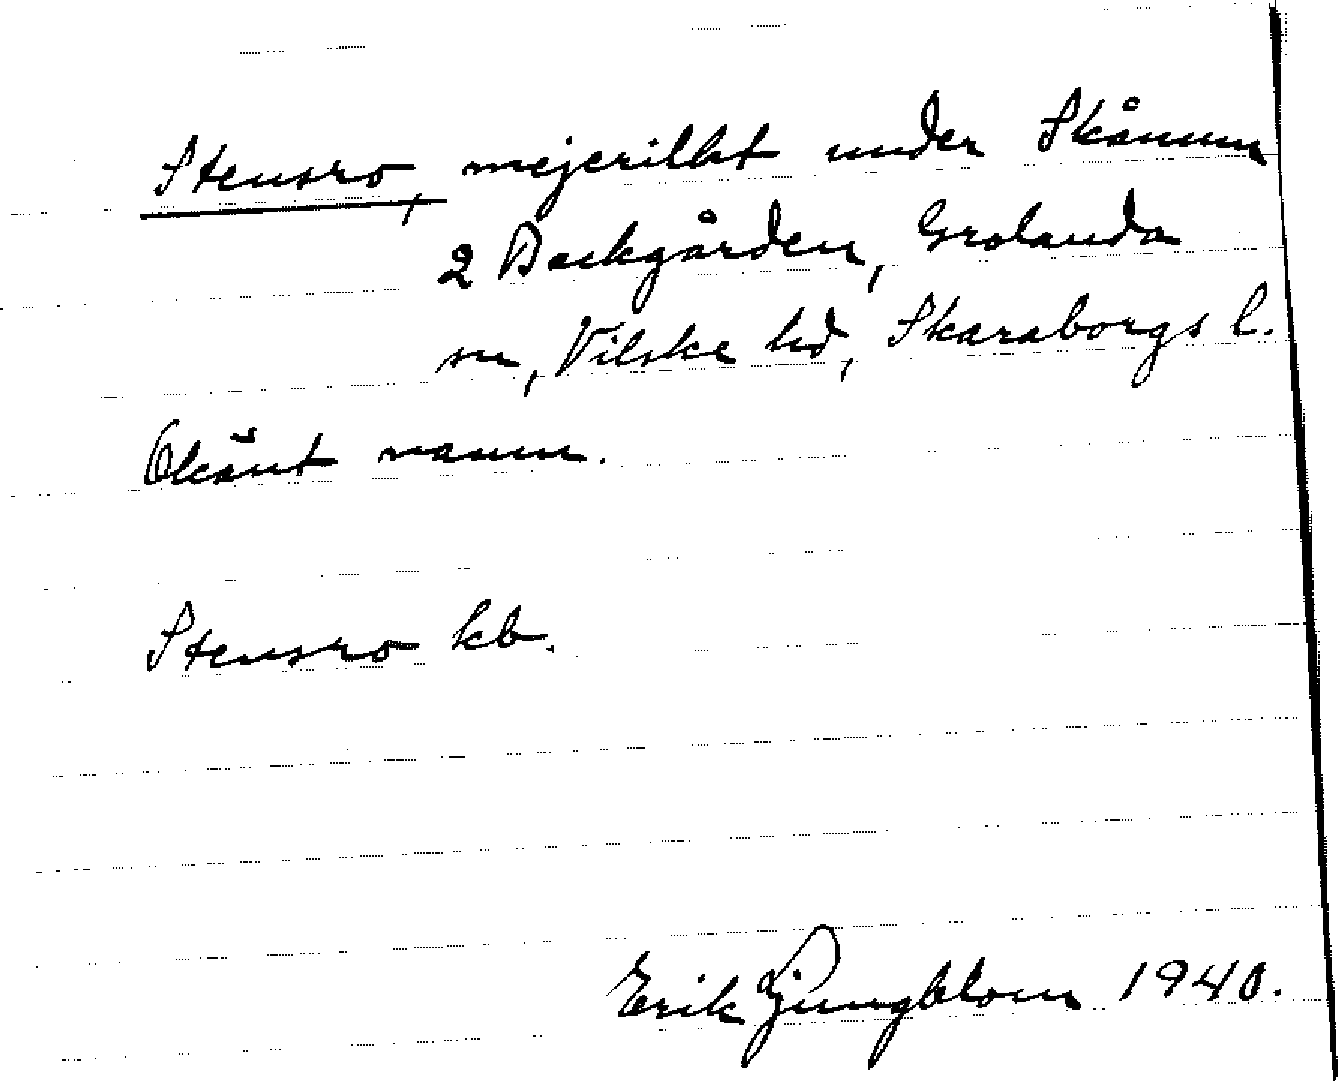 Stensro, mejerilht under Skånum
2 Backgården, Grolanda
sn, Vilske hd, Skaraborgs l.
Okänt namn.
Stensro kb.
Erik Ljungblom 1940.